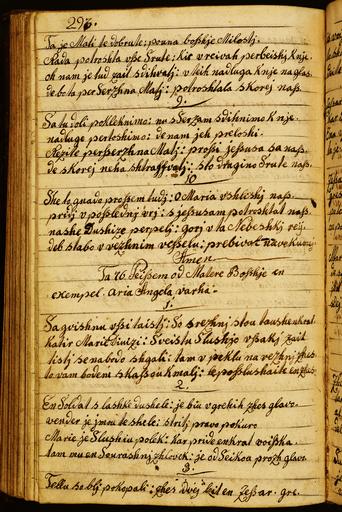 296.
Ta je Mati te dobrute: pouna boshje Milosty.
Rada potroshta vse Srute: kir v reivah perbeishy knje.
oh nam je tud zait sdihvaly: v teih nadluga knje na glas.
de bo ta per Serzhna Maty: potroshtala skorej nass.
9.
Sa tu doli poklehnimo: no Serzam sdihnimo k nje.
nadluge pertoshimo: de nam jeh preloshi.
Reshte perserzhna Maty: prossi jesusa sa nass.
de skorej neha shtraffvaty: sto dragino Srute nass.
10
She to gnado prossem tudi: O Maria vshleshy nass.
pridi v poslednij vri: s jesusam potroshtat nass.
nashe Dushize perpely: gori v ta Nebeshky reij.
deb slabo v vezhnim vesselu: prebivat na vekumej
Amen
Ta 76 Peissem od Matere Boshje en
exempel. aria Angela varha.
1.
Sa gvishnu vssi taisty: So srezhni stou taushenkrat
katir Marii dinizi: Svestu Slushjo vsaky zait
tisty se nabodo shgali: tam v peklu na vezhni zhes
to vam bodem skasou kmaly: le possluhaite en zhes
2.
En Soldat s lashke dushele: je biu v grekih zhes glavo.
vender je jmeu te shele: strity pravo pokuro
Marie je Slushiu polek: kar pride enkrat voiska.
tam mu en Sourashny zhlovek: je od seikou prozh glavo.
3.
Tellu so bly pokopali: